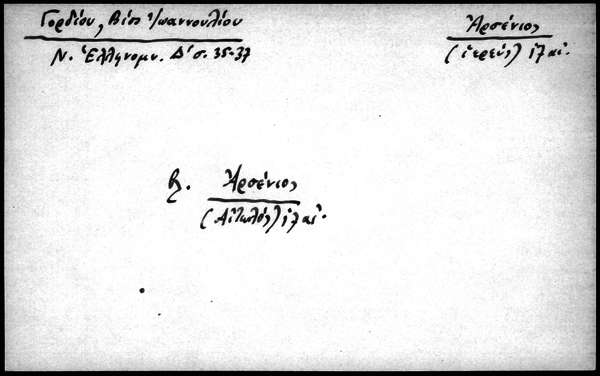 Γορδίου, Βίος Ἰωαννουλίου
Ν. Ἑλληνομν. Δ' σ. 35-37
Ἀρσένιος
(ἱερεύς) 17 αἰ.
βλ. Ἀρσένιος
(Αἰτωλός) 17 αἰ.